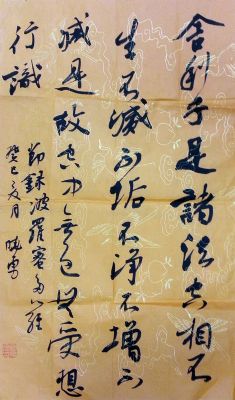 舍利子是諸法空相不
生不滅不垢不淨不增不
減是故空中無色無受想
行識
節錄波羅蜜多心經
癸巳夏月